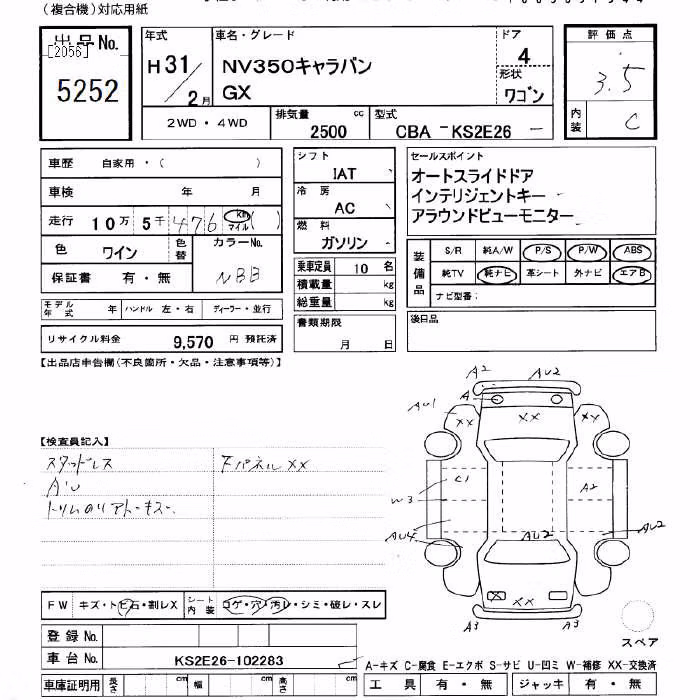 (複合機)対応用紙
出品No.
[2056]
5252
年式
H31/2月
車名・グレード
NV350キャラバン
GX
ドア
4
形状
ワゴン
評価点
3.5
内装
C
2WD・4WD
排気量
2500 cc
型式
CBA - KS2E26 -
車歴 自家用・( )
車検 年 月
走行 10万5千476 km マイル ( )
色 ワイン 色替 カラーNo. NBB
保証書 有・無
モデル年式 年 ハンドル 左・右 ディーラー・並行
リサイクル料金 9,570 円 預託済
シフト
IAT
冷房
AC
燃料
ガソリン
乗車定員 10 名
積載量 kg
総重量 kg
書類期限
月 日
セールスポイント
オートスライドドア
インテリジェントキー
アラウンドビューモニター
装備品
S/R 純A/W P/S P/W ABS
純TV 純ナビ 革シート 外ナビ エアB
ナビ型番:
後日品
【出品店申告欄(不良箇所・欠品・注意事項等)】
【検査員記入】
スタッドレス
A'U
トリムのリアトーキズ-.
下パネルXX
A2 AU2
A
AU1 XX XX XX
C1 A2
W3
AU4 AU2 AU2
X XX
A3 A3
スペア
FW キズ・トビ石・割レX
シート内装 コゲ・穴・汚レ・シミ・破レ・スレ
登録No.
車台No. KS2E26-102283
A-キズ C-腐食 E-エクボ S-サビ U-凹ミ W-補修 XX-交換済
車庫証明用 長さ cm 幅 cm 高さ cm
工具 有・無 ジャッキ 有・無